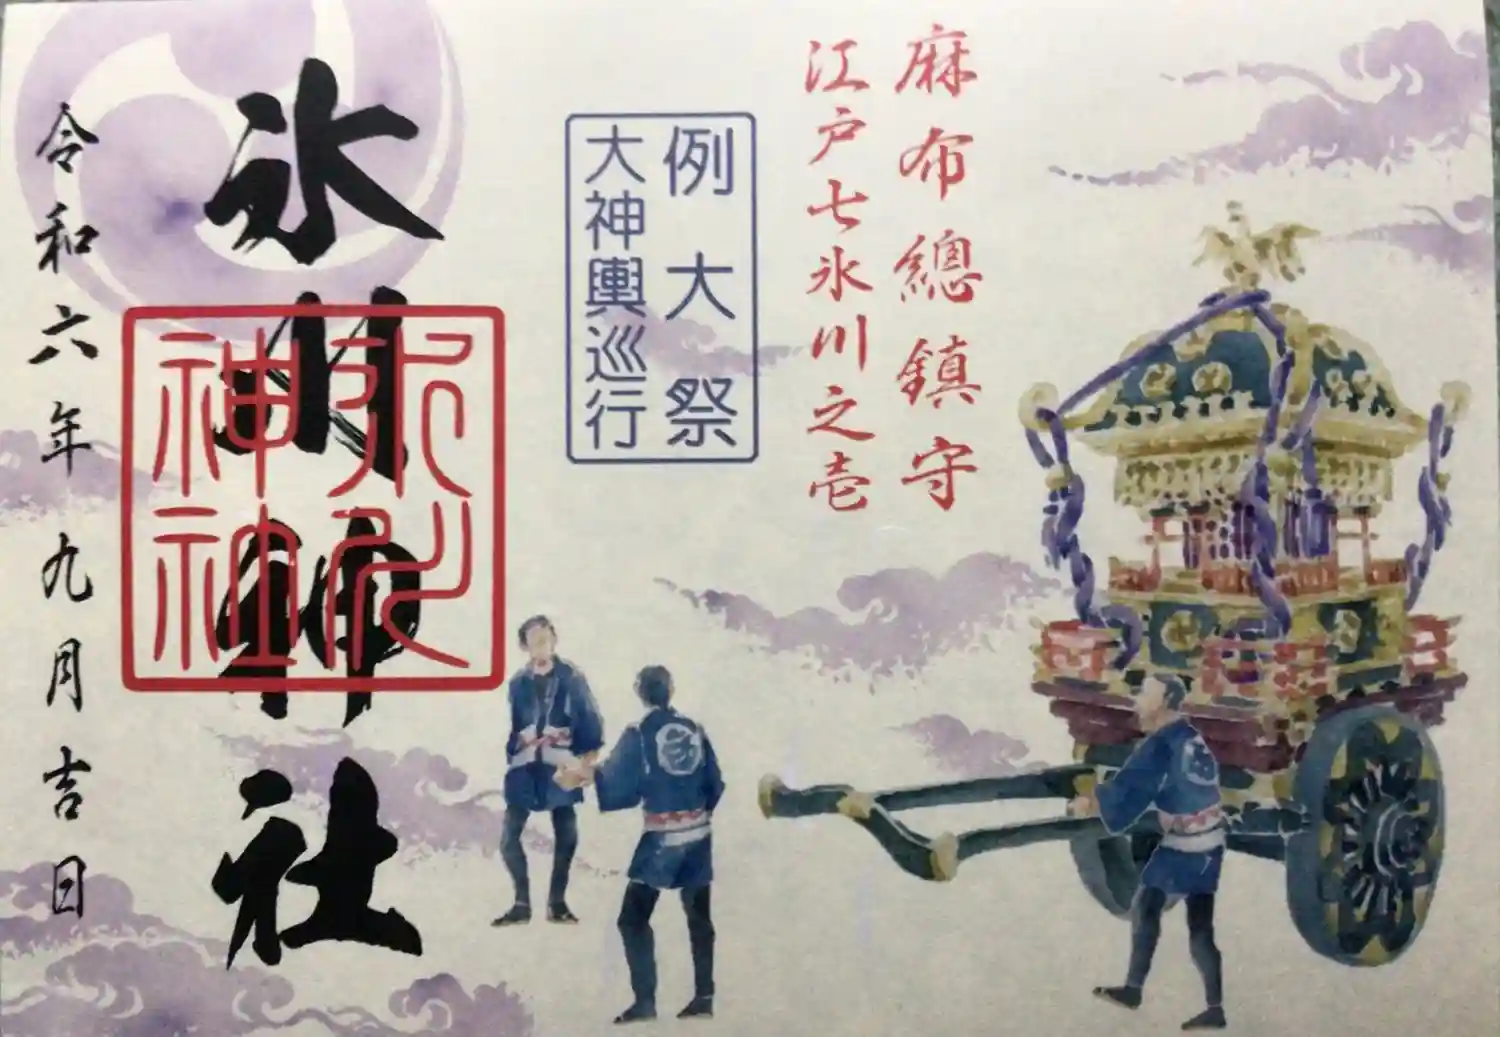 麻布總鎮守
江戸七氷川之壱
例大祭
大神輿巡行
氷川神社
氷川
神社
令和六年九月吉日